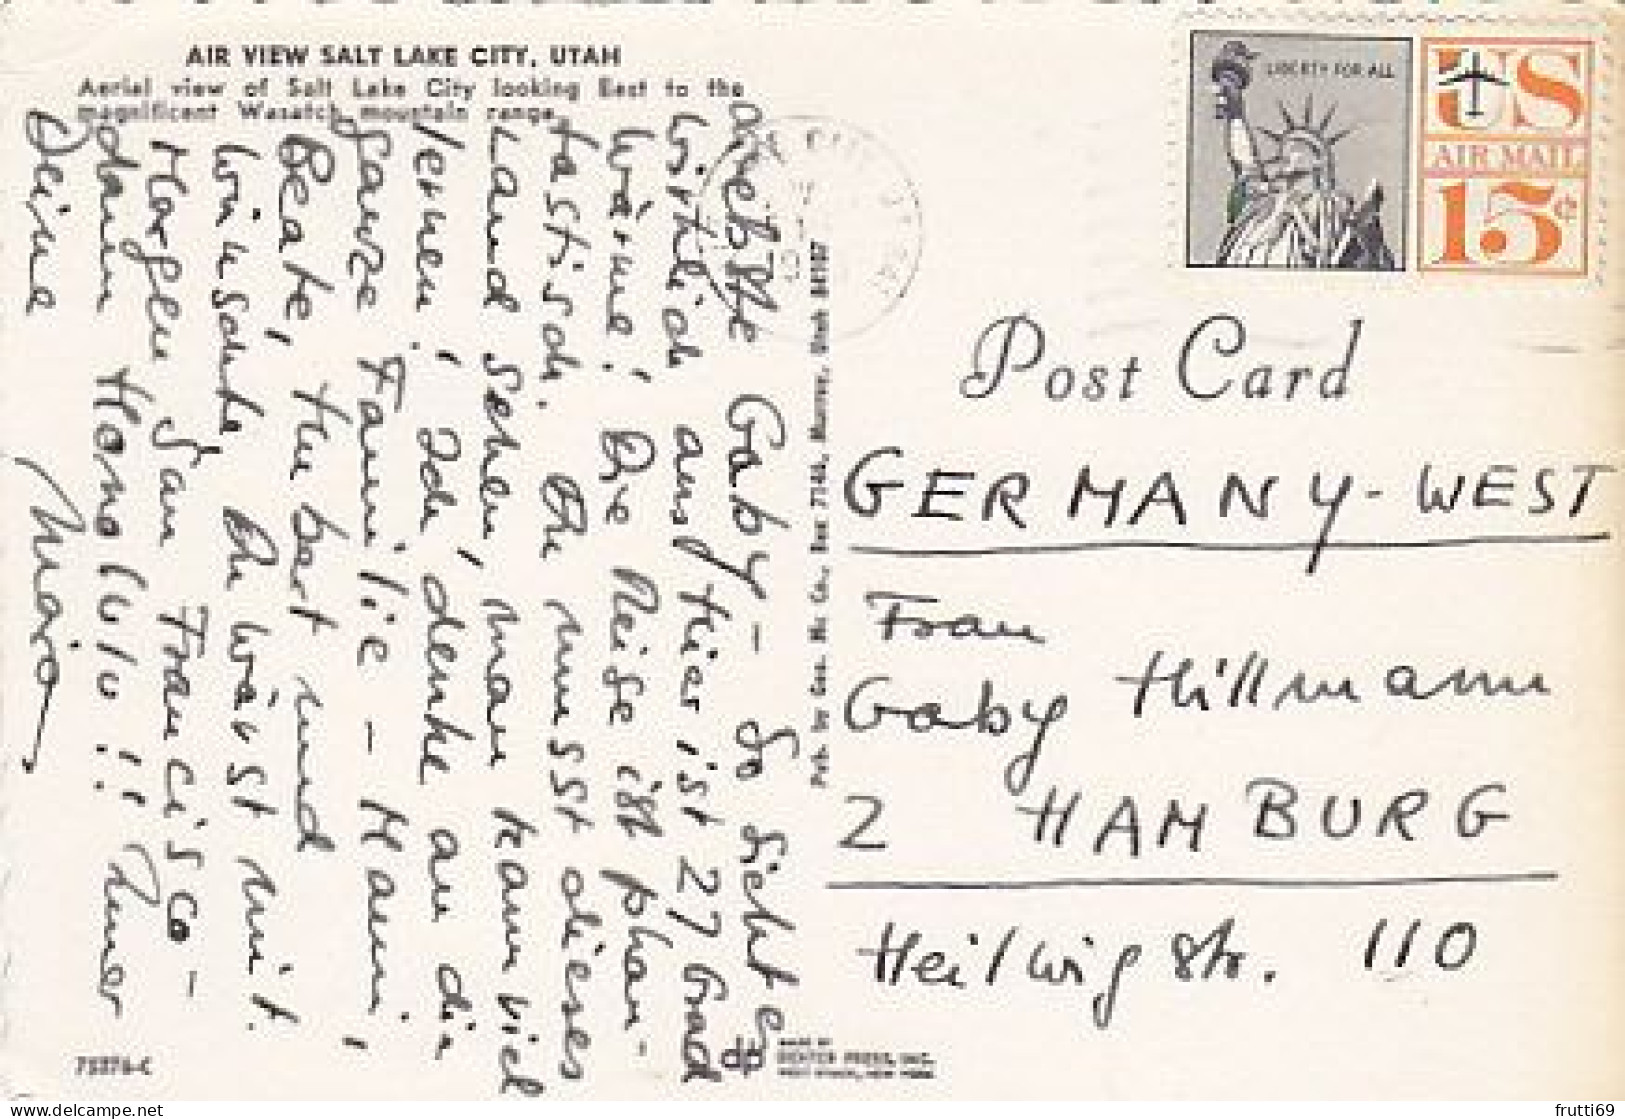 AIR VIEW SALT LAKE CITY, UTAH
Aerial view of Salt Lake City looking East to the
magnificent Wasatch mountain range.
Gaby - So sieht es
wirklich aus! Hier ist 27 Grad
Wärme! Die Reise ist phan-
tastisch. Du musst dieses
Land sehen, man kann viel
lernen! Ich denke an die
ganze Familie - Mami,
Beate, Hubert und
wünschte, Du wärst mit.
Morgen San Francisco -
dann Honolulu!! Immer
Deine
Pub. by Geo. Mc Co., Box 7144, Murray, Utah 84107
LIBERTY FOR ALL
US
AIR MAIL
15¢
Post Card
GERMANY-WEST
Frau
Gaby Hillmann
2 HAMBURG
Heilwigstr. 110
75376-C
MADE BY
DEXTER PRESS, INC.
WEST NYACK, NEW YORK
frutti69